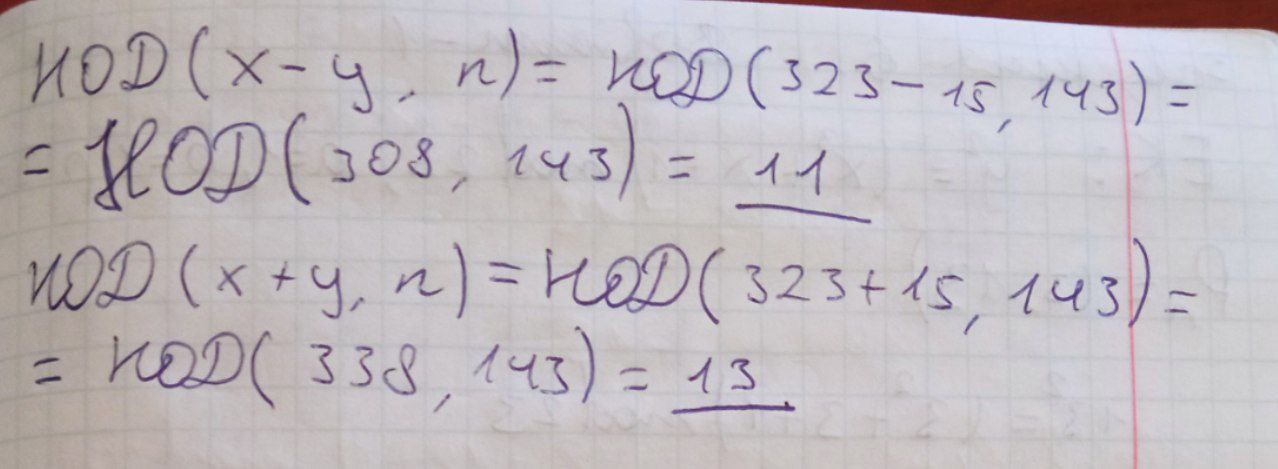 НОД(x-y, n) = НОД(323-15, 143) =
= НОД(308, 143) = 11
НОД(x+y, n) = НОД(323+15, 143) =
= НОД(338, 143) = 13